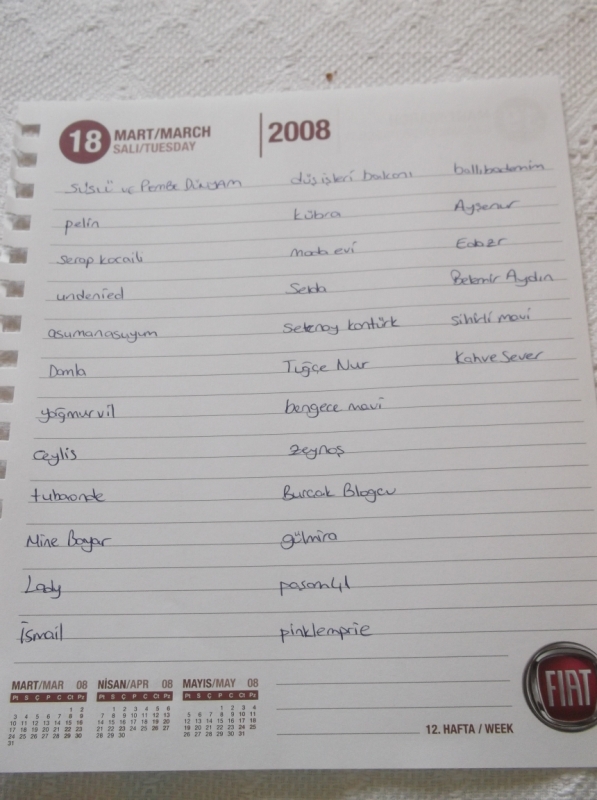 18 MART/MARCH 2008
SALI/TUESDAY
süslü ve Pembe Dünyam
pelin
serap kocaili
undenied
asumanasuyum
Damla
yağmur vil
ceylis
tubaonde
Mine Bayar
Lady
İsmail
düş işleri bakanı
kübra
moda evi
Seda
Selenay kontürk
Tuğçe Nur
bengece mavi
zeynoş
Burcak Blogcu
gülmira
pasam41
pinklemprie
ballıbademim
Ayşenur
Ecbzr
Belemir Aydın
Sihirli mavi
Kahve Sever
MART/MAR 08
Pt S Ç P C Ct Pz
1 2
3 4 5 6 7 8 9
10 11 12 13 14 15 16
17 18 19 20 21 22 23
24 25 26 27 28 29 30
31
NİSAN/APR 08
Pt S Ç P C Ct Pz
1 2 3 4 5 6
7 8 9 10 11 12 13
14 15 16 17 18 19 20
21 22 23 24 25 26 27
28 29 30
MAYIS/MAY 08
Pt S Ç P C Ct Pz
1 2 3 4
5 6 7 8 9 10 11
12 13 14 15 16 17 18
19 20 21 22 23 24 25
26 27 28 29 30 31
12. HAFTA / WEEK
FIAT